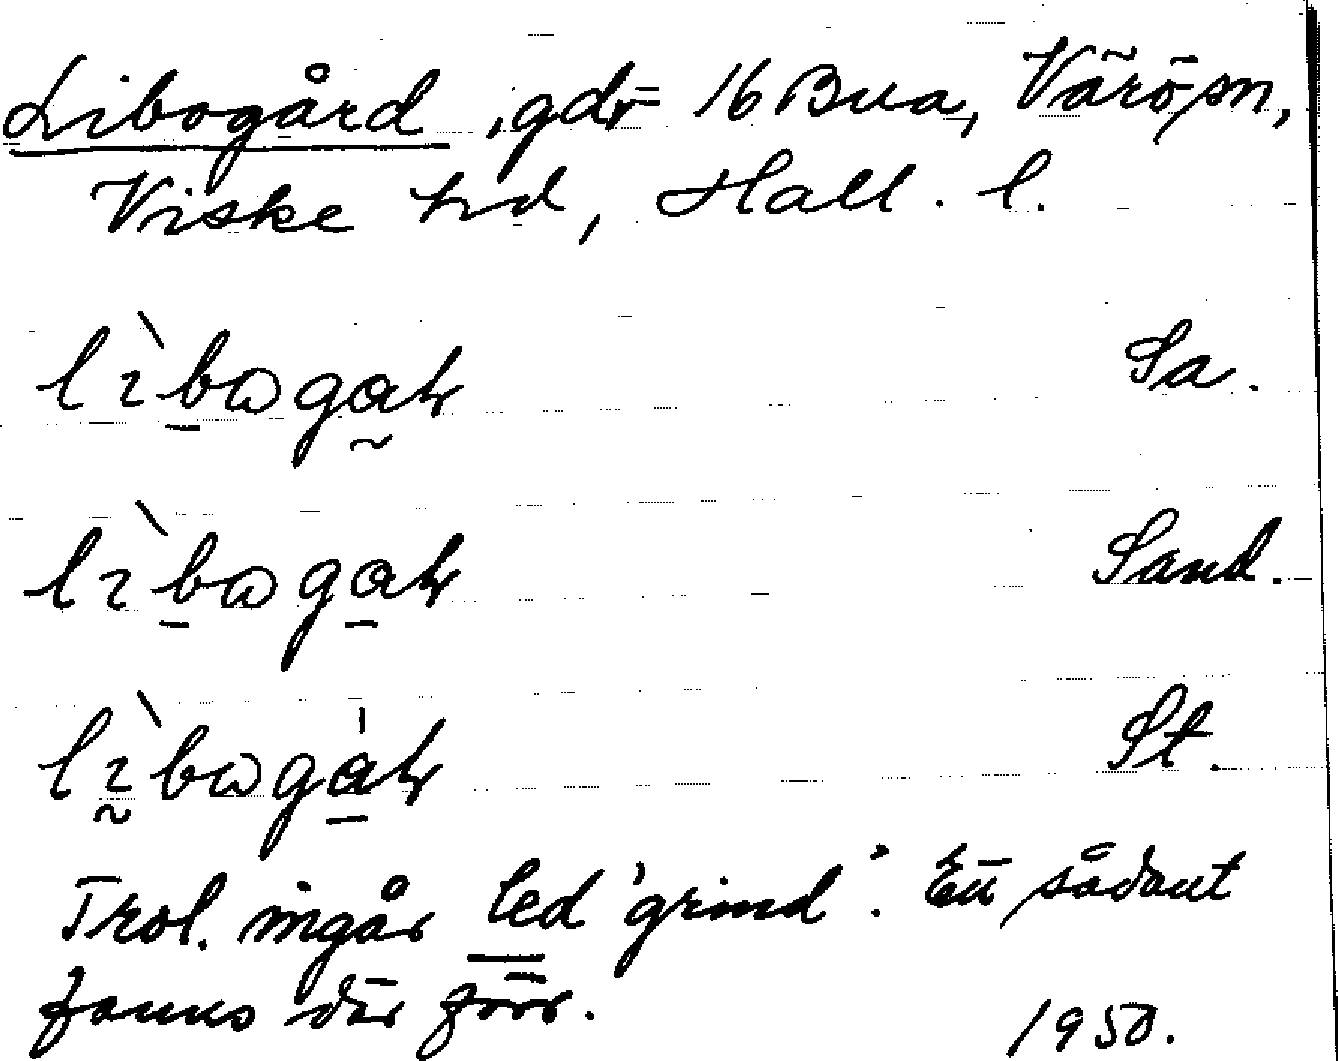 Libogård, gdr 16 Bua, Värö sn,
Viske hd, Hall. l.
lìbωgaʈ Sa.
lìbωgaʈ Sand.
lìbωgàʈ St.
Trol. ingår led 'grind'. Ett sådant
fanns där förr.
1950.